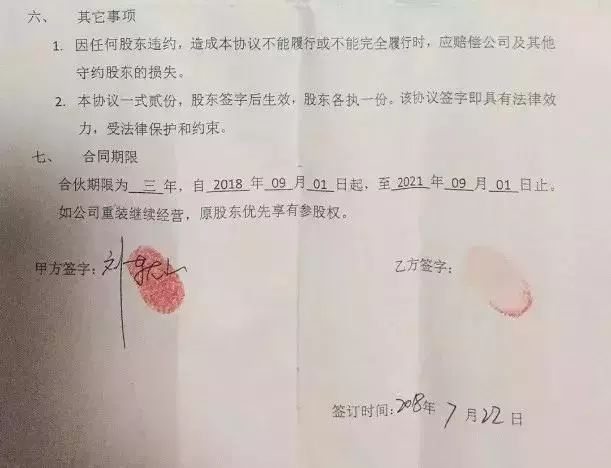 六、 其它事项
1. 因任何股东违约，造成本协议不能履行或不能完全履行时，应赔偿公司及其他
守约股东的损失。
2. 本协议一式贰份，股东签字后生效，股东各执一份。该协议签字即具有法律效
力，受法律保护和约束。
七、 合同期限
合伙期限为 三 年，自 2018 年 09 月 01 日起，至 2021 年 09 月 01 日止。
如公司重装继续经营，原股东优先享有参股权。
甲方签字： 乙方签字：
签订时间：2018年 7 月 22 日